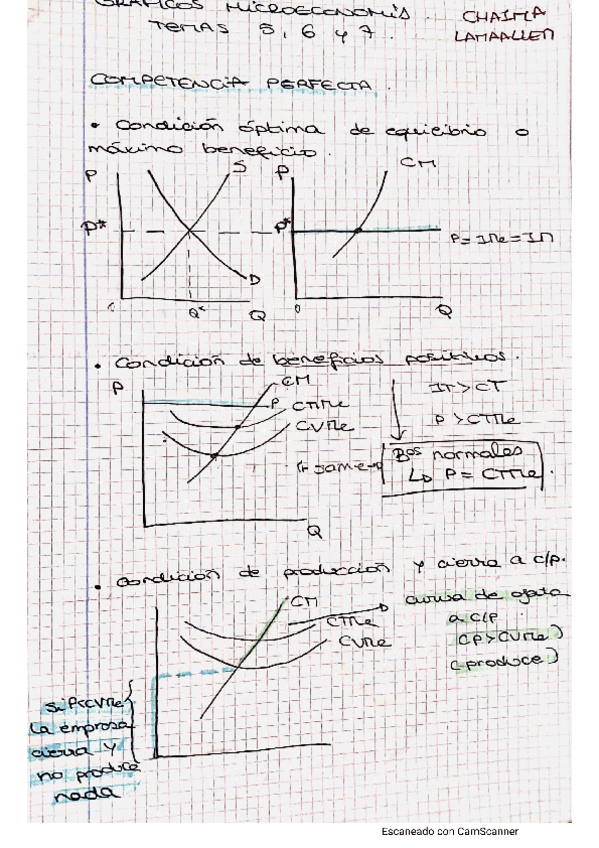 GRÁFICOS MICROECONOMÍA.
TEMAS 5, 6 y 7.
CHAIMA
LAMAALLEM
COMPETENCIA PERFECTA.
• Condición óptima de equilibrio o
máximo beneficio.
P
S
P*
D
Q*
Q
P
CM
P*
P=IMe=IM
0
Q
• Condición de beneficios positivos.
P
CM
P
CTMe
CVMe
Q
IT>CT
P>CTMe
Bos normales
↳ P = CTMe.
• Condición de producción y cierre a c/p.
CM
CTMe
CVMe
curva de oferta
a c/p
(P>CVMe)
(produce)
Si P<CVMe
la empresa
cierra y
no produce
nada
Escaneado con CamScanner